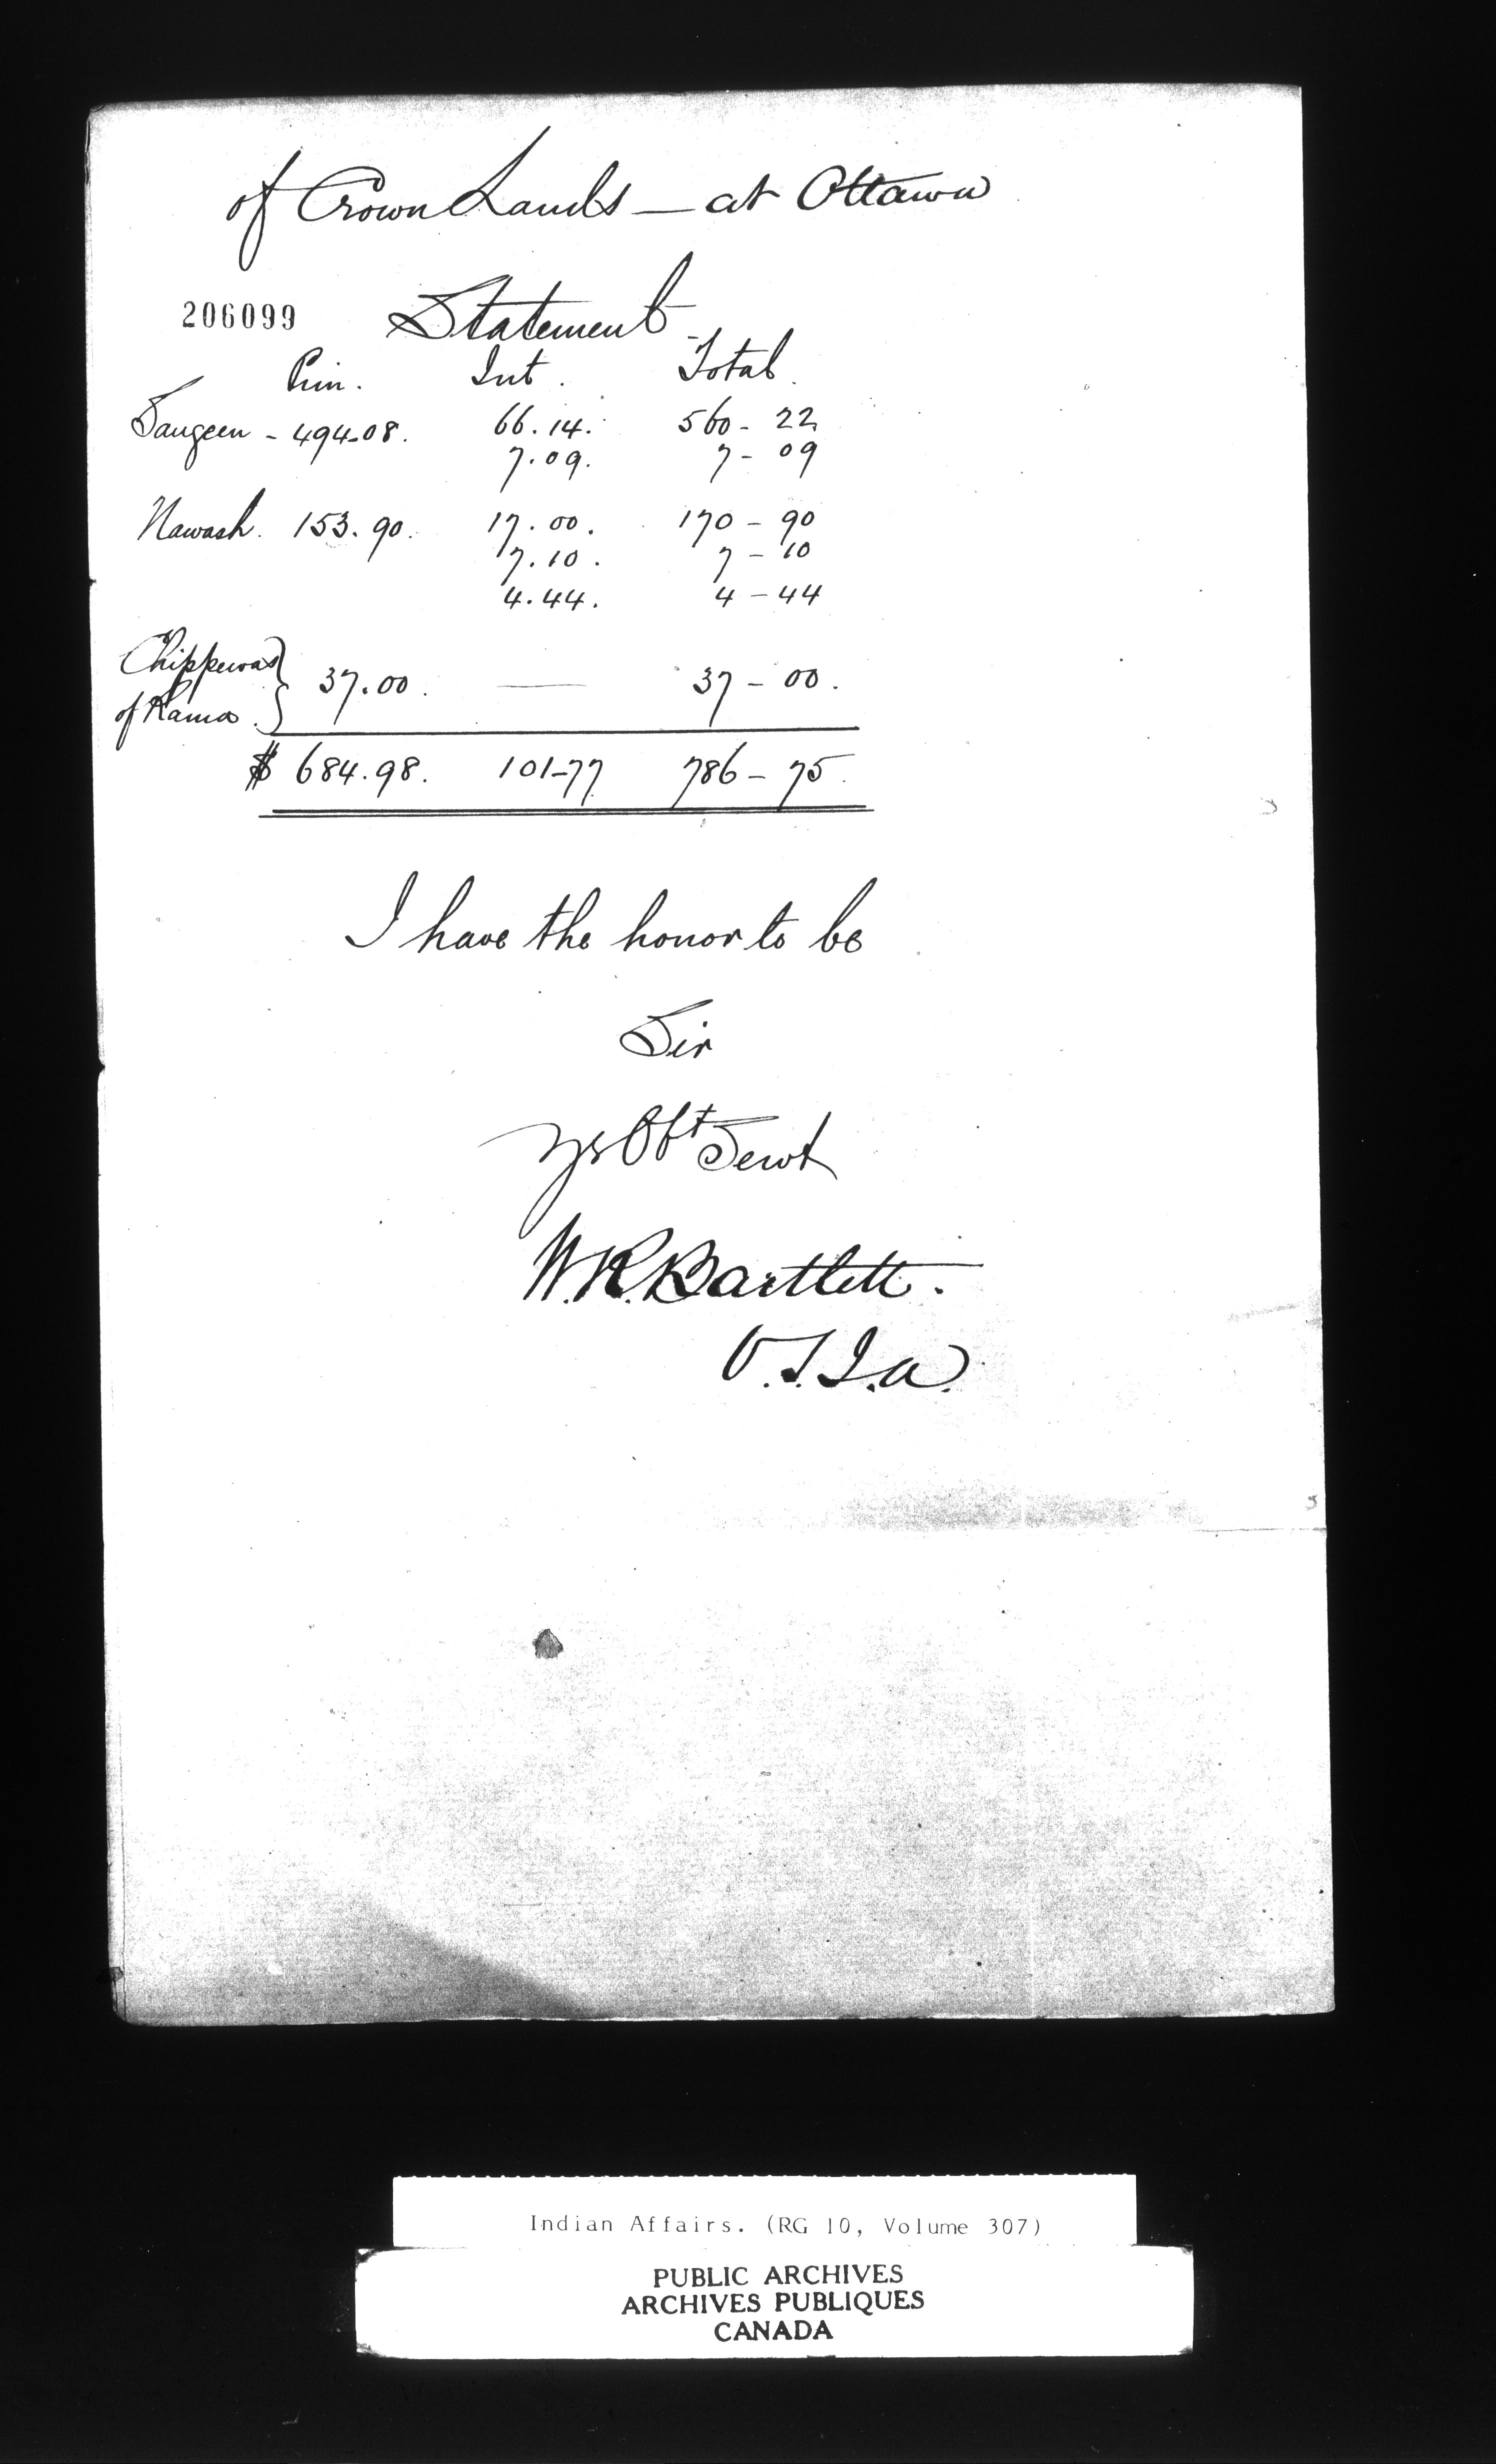 of Crown Lands — at Ottawa
206099 Statement
Prin. Int. Total.
Saugeen - 494.08. 66.14. 560 - 22
7.09. 7 - 09
Nawash. 153.90. 17.00. 170 - 90
7.10. 7 - 10
4.44. 4 - 44
Chippewas
of Rama. } 37.00. — 37 - 00.
$ 684.98. 101-77 786 - 75.
I have the honor to be
Sir
Yr Obt Servt
W.R. Bartlett.
V.S.I.A.
Indian Affairs. (RG 10, Volume 307)
PUBLIC ARCHIVES
ARCHIVES PUBLIQUES
CANADA